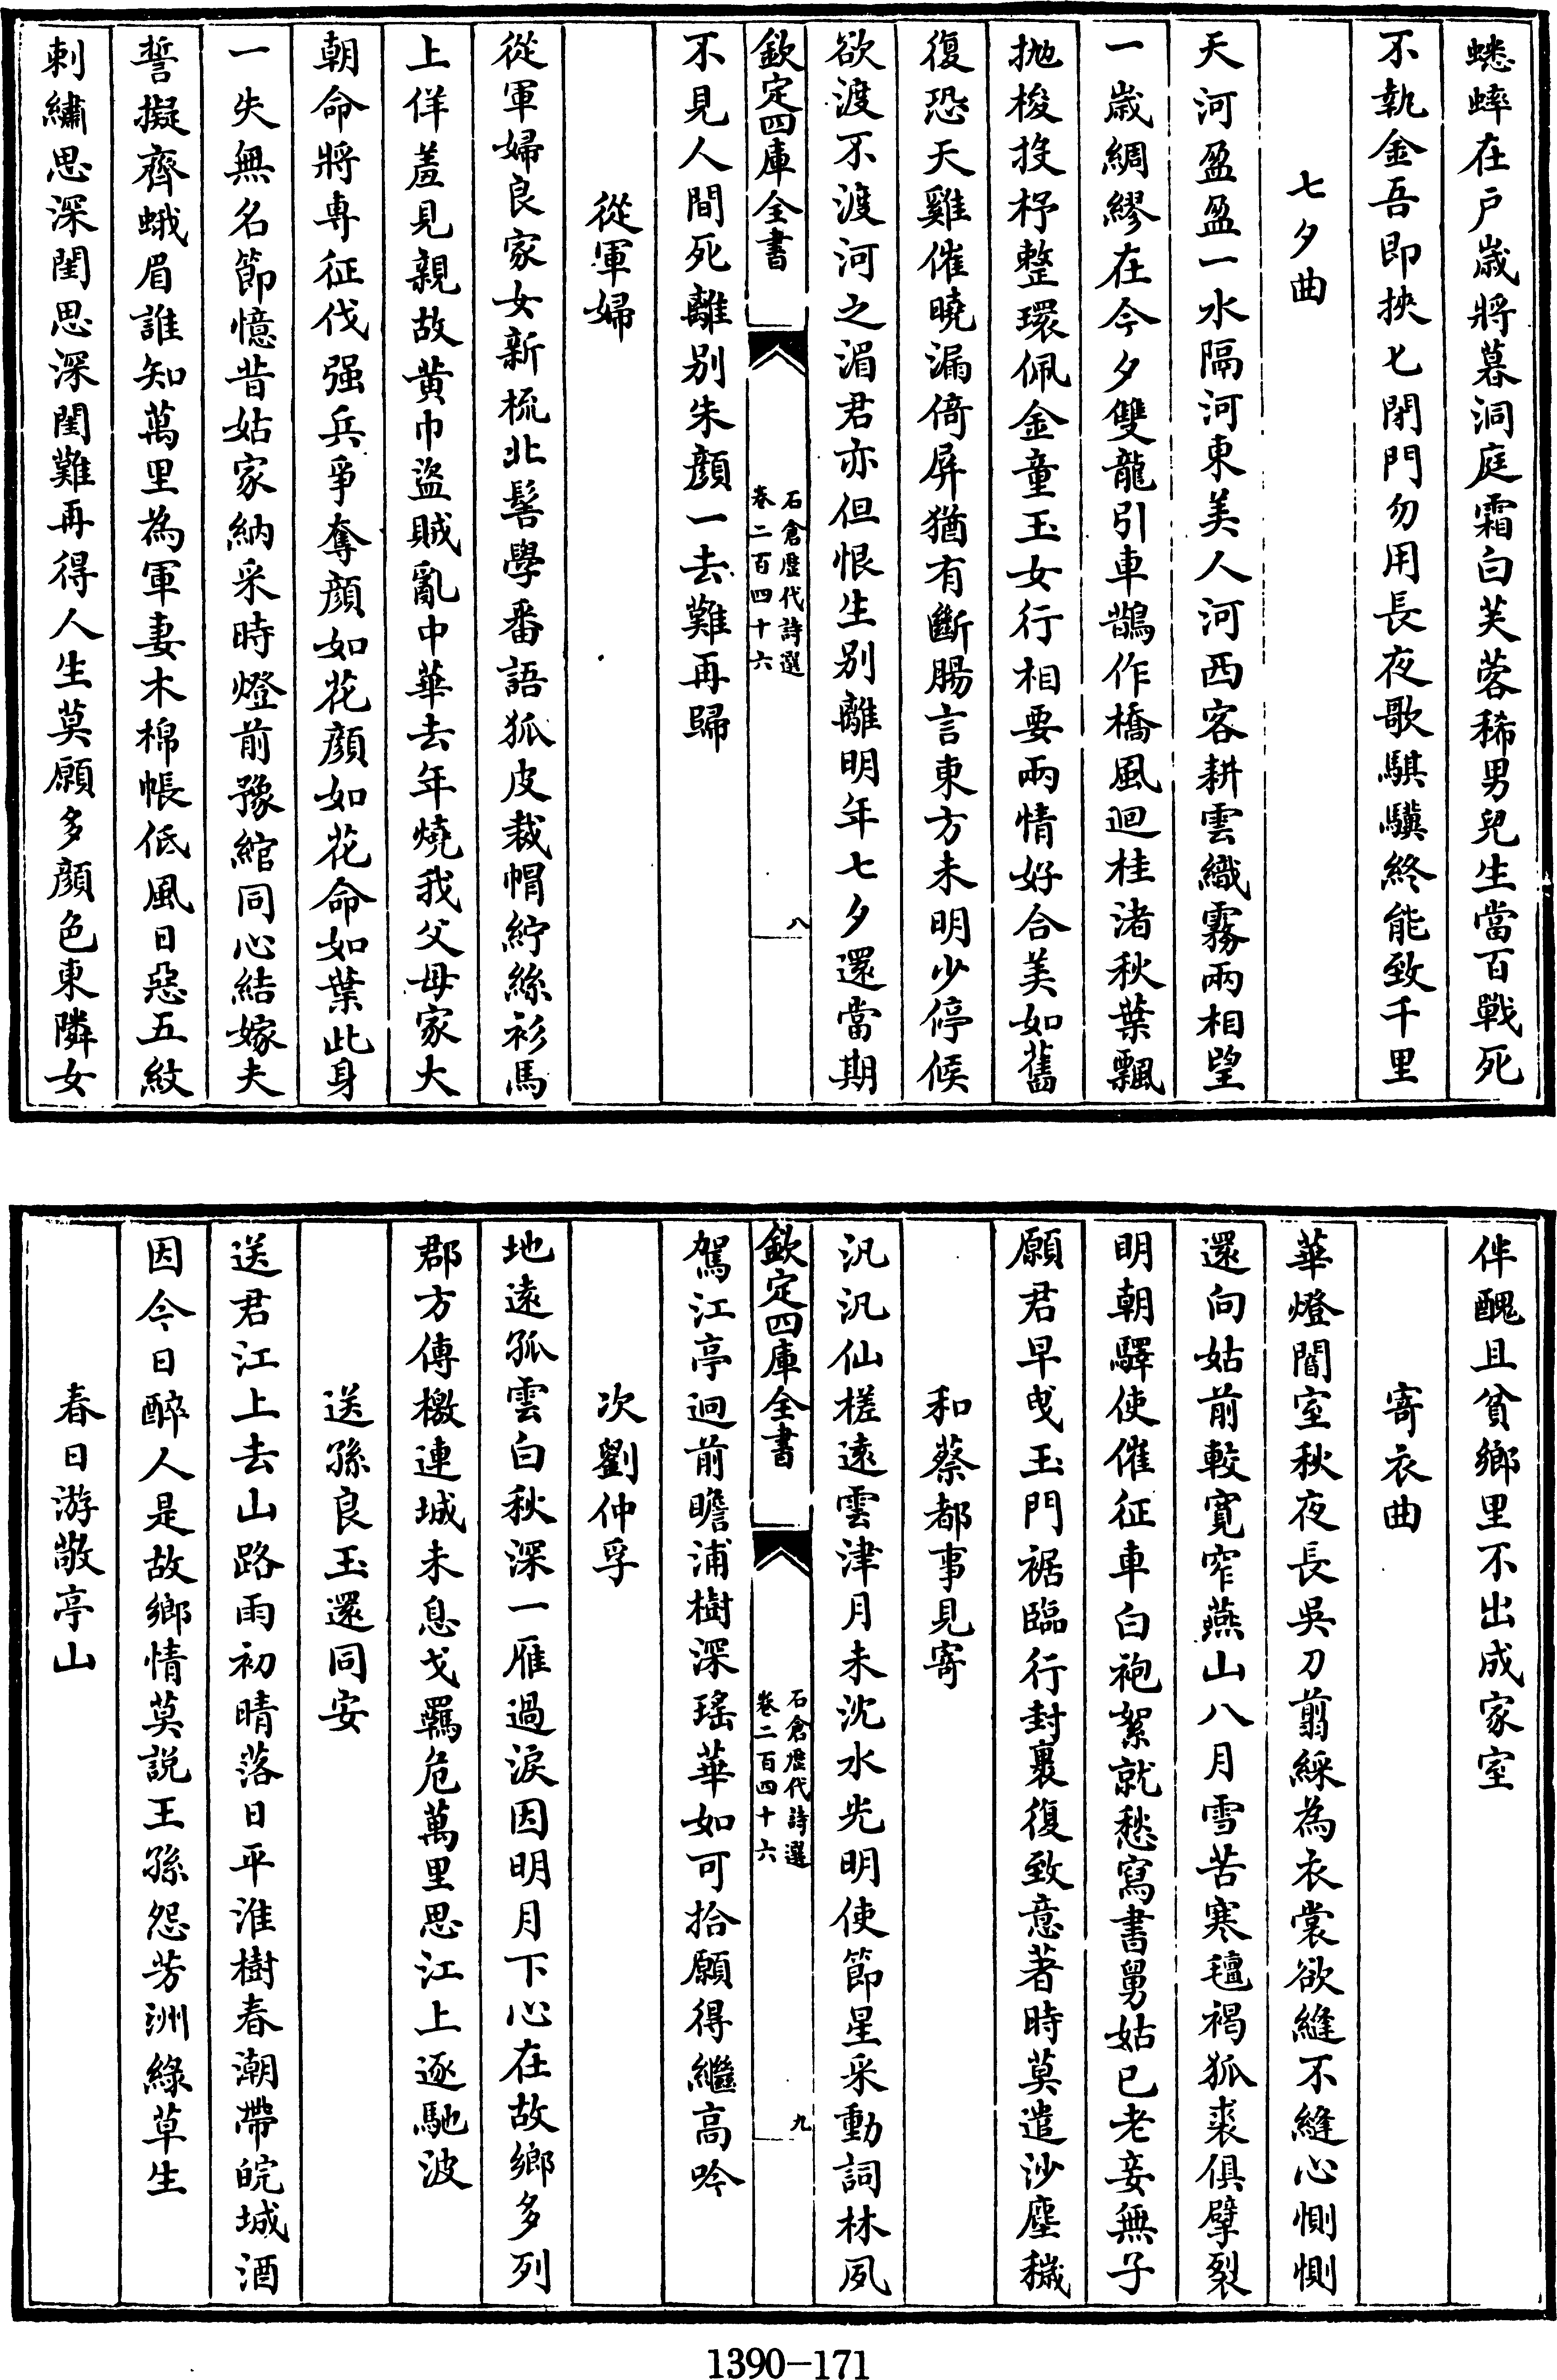 蟋蟀在戶歲將暮洞庭霜白芙蓉稀男兒生當百戰死
不執金吾即挾匕閉門勿用長夜歌騏驥終能致千里
七夕曲
天河盈盈一水隔河東美人河西客耕雲織霧兩相望
一歲綢繆在今夕雙龍引車鵲作橋風迴桂渚秋葉飄
拋梭投杼整環佩金童玉女行相要兩情好合美如舊
復恐天雞催曉漏倚屏猶有斷腸言東方未明少停候
欲渡不渡河之湄君亦但恨生別離明年七夕還當期
欽定四庫全書
石倉歷代詩選
卷二百四十六
八
不見人間死離別朱顏一去難再歸
從軍婦
從軍婦良家女新梳北髻學番語狐皮裁帽紵絲衫馬
上佯羞見親故黃巾盜賊亂中華去年燒我父母家大
朝命將專征伐强兵爭奪顏如花顏如花命如葉此身
一失無名節憶昔姑家納采時燈前豫綰同心結嫁夫
誓擬齊蛾眉誰知萬里為軍妻木棉帳低風日惡五紋
刺繡思深閨思深閨難再得人生莫願多顏色東隣女
伴醜且貧鄉里不出成家室
寄衣曲
華燈闇室秋夜長吳刀翦綵為衣裳欲縫不縫心惻惻
還向姑前較寬窄燕山八月雪苦寒氊褐狐裘俱擘裂
明朝驛使催征車白袍絮就愁寫書舅姑已老妾無子
願君早曳玉門裾臨行封裹復致意著時莫遣沙塵穢
和蔡都事見寄
汎汎仙槎遠雲津月未沈水光明使節星采動詞林夙
欽定四庫全書
石倉歷代詩選
卷二百四十六
九
駕江亭迥前瞻浦樹深瑤華如可拾願得繼高吟
次劉仲孚
地遠孤雲白秋深一雁過淚因明月下心在故鄉多列
郡方傳檄連城未息戈羈危萬里思江上逐馳波
送孫良玉還同安
送君江上去山路雨初晴落日平淮樹春潮帶皖城酒
因今日醉人是故鄉情莫説王孫怨芳洲綠草生
春日游敬亭山
1390-171